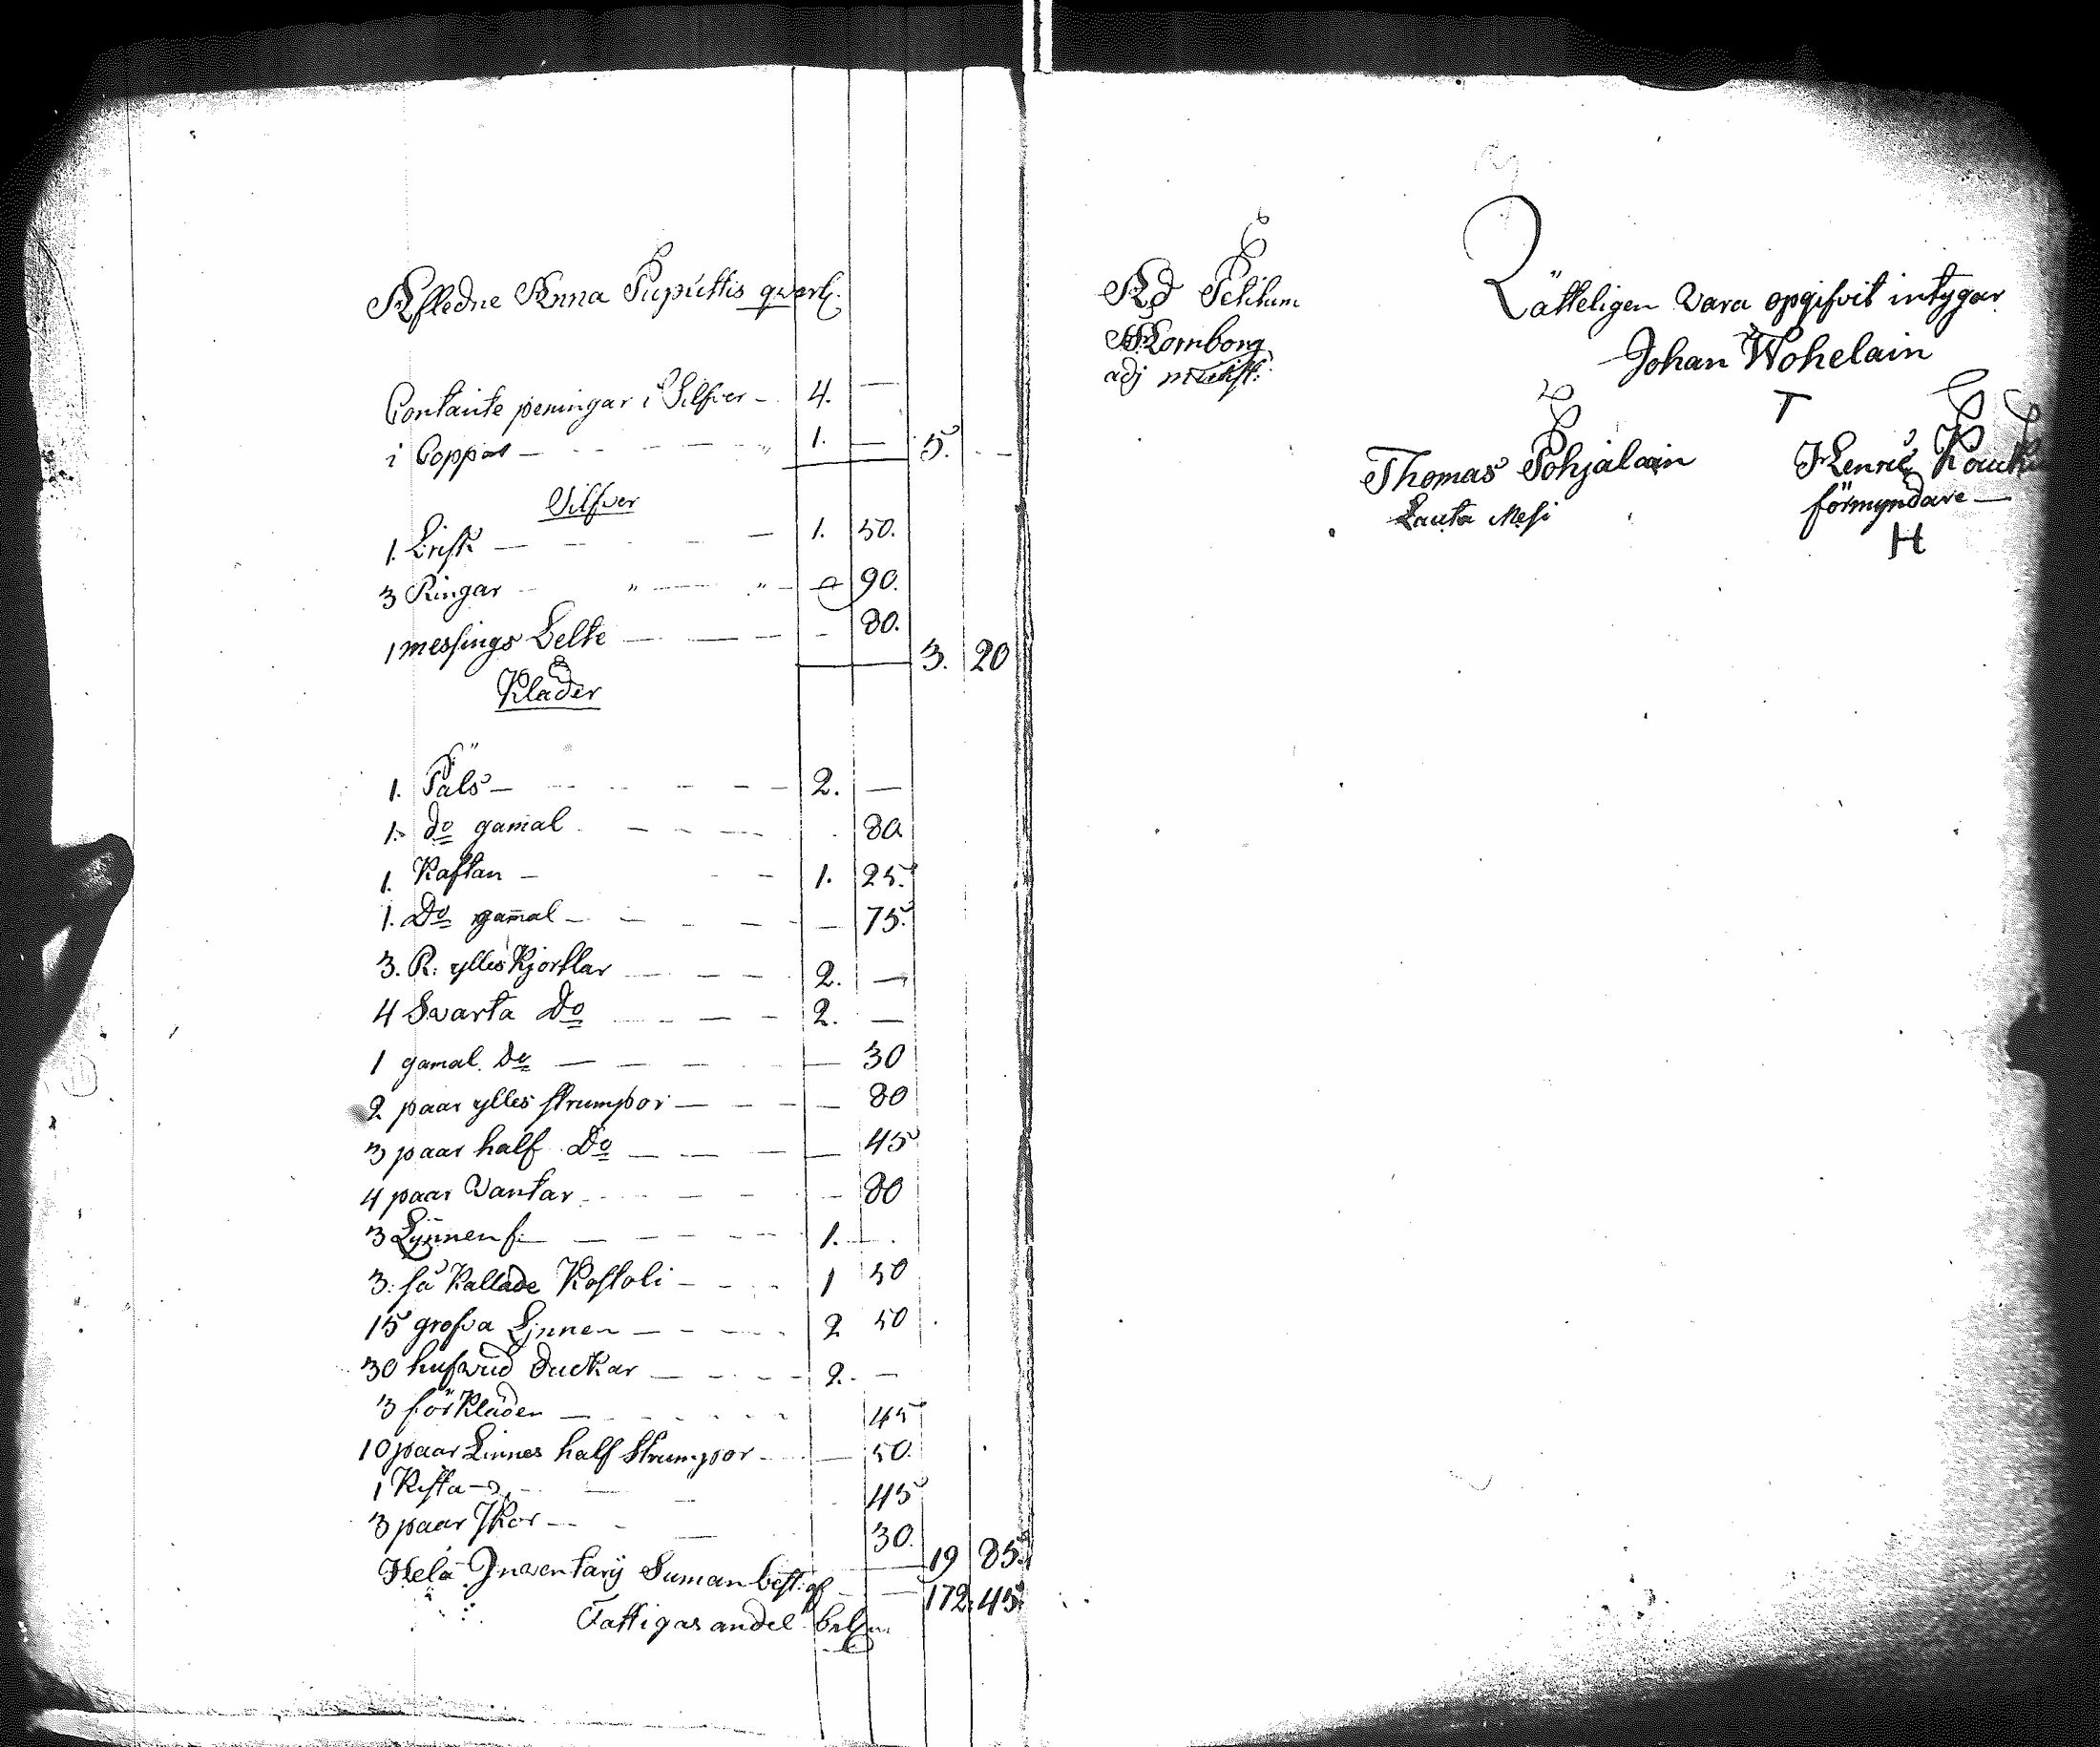 Afledne Anna Puputtis qvarl.
Contante peningar i Silfver - 4. —
i Coppar — 1. — 5. - -
Silfver
1. Brisk — 1. 50.
3 Ringar — 90.
1 messings Belte — - 80.
3. 20
Kläder
1. Päls — 2. —
1. do gamal - 80
1. Kaftan — 1. 25.
1. Do gamal — 75.
3. R. ylles Kjortlar — 2. —
4 Svarta Do — 2. —
1 gamal Do — 30
2 paar ylles strumpor — 80
3 paar half Do — 45
4 paar Vantar — 80
3 Lynnen f: — 1. —
3. så Kallade Kostoli — 1 50
15 grofva Lynnen — 2 50
30 hufwud dukar — 2. —
3 förkläden — 45
10 paar Linnes half Strumpor — 50.
1 Kista — 45
3 paar Skor — 30.
19 85.
Hela Inventarij Suman best: af — 172. 45.
Fattigas andel
Ad
Kornborg
adj
Rätteligen vara opgifvit intygar
Johan Wohelain
T
Thomas Pohjalain
Lauta Mesi
Henric
förmyndare —
H